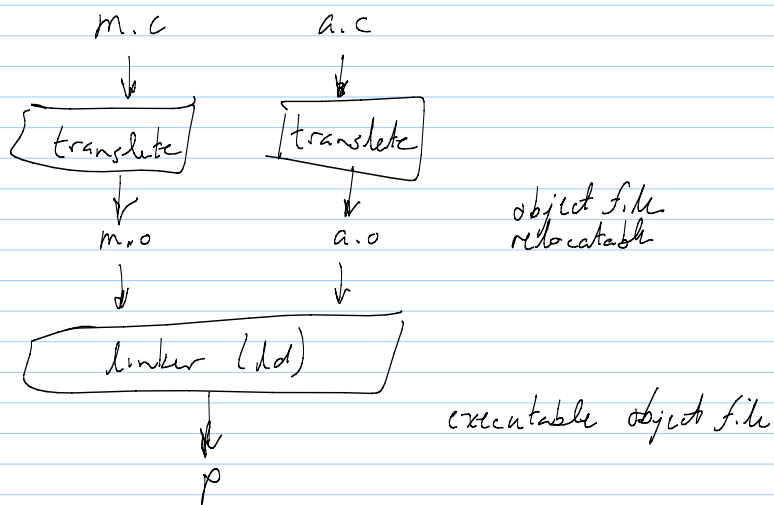 m.c a.c
translate translate
m.o a.o
object file
relocatable
linker (ld)
executable object file
p